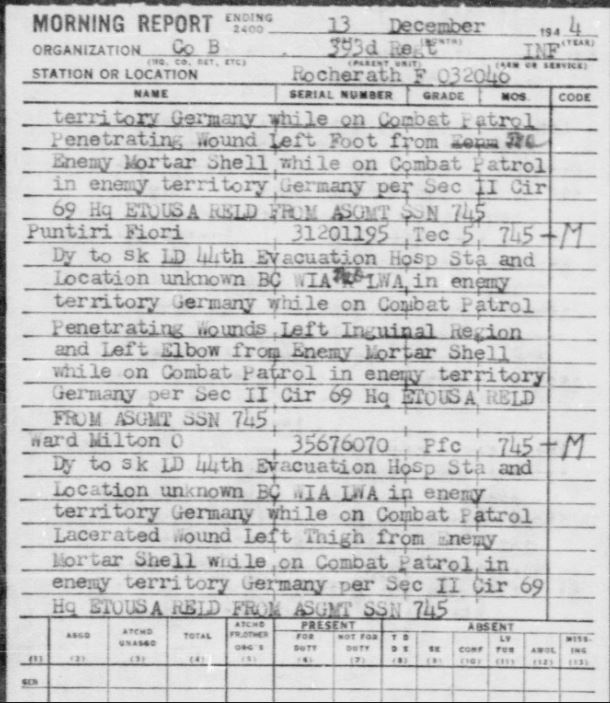 MORNING REPORT ENDING 2400 13 December 1944
(MONTH) (YEAR)
ORGANIZATION Co B 393d Regt INF
(HQ. CO. DET, ETC) (PARENT UNIT) (ARM OR SERVICE)
STATION OR LOCATION Rocherath F 032046
NAME SERIAL NUMBER GRADE MOS. CODE
territory Germany while on Combat Patrol
Penetrating Wound Left Foot from
Enemy Mortar Shell while on Combat Patrol
in enemy territory Germany per Sec II Cir
69 Hq ETOUSA RELD FROM ASGMT SSN 745
Puntiri Fiori 31201195 Tec 5 745 + M
Dy to sk LD 44th Evacuation Hosp Sta and
Location unknown BC WIA LWA in enemy
territory Germany while on Combat Patrol
Penetrating Wounds Left Inguinal Region
and Left Elbow from Enemy Mortar Shell
while on Combat Patrol in enemy territory
Germany per Sec II Cir 69 Hq ETOUSA RELD
FROM ASGMT SSN 745
Ward Milton O 35676070 Pfc 745 + M
Dy to sk LD 44th Evacuation Hosp Sta and
Location unknown BC WIA LWA in enemy
territory Germany while on Combat Patrol
Lacerated Wound Left Thigh from Enemy
Mortar Shell while on Combat Patrol in
enemy territory Germany per Sec II Cir 69
Hq ETOUSA RELD FROM ASGMT SSN 745
PRESENT ABSENT
ASGD ATCHD UNASGD TOTAL ATCHD FR.OTHER ORG'S FOR DUTY NOT FOR DUTY T D D S SK CONF LV FUR AWOL MISS-ING
(1) (2) (3) (4) (5) (6) (7) (8) (9) (10) (11) (12) (13)